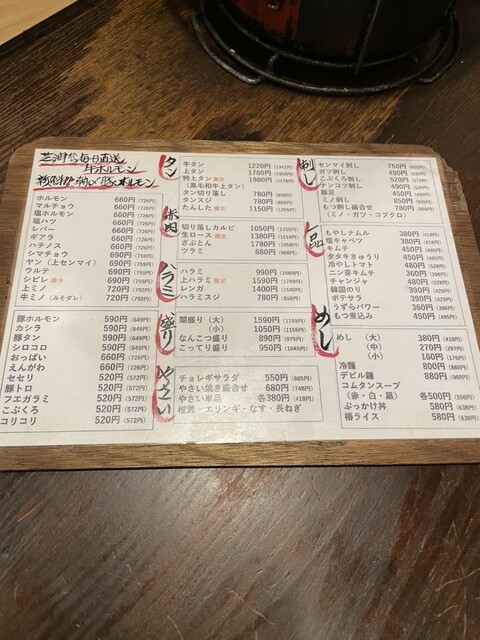 芝浦から毎日直送
牛ホルモン
ホルモン 660円(726円)
マルチョウ 660円(726円)
塩ホルモン 660円(726円)
塩ハツ 660円(726円)
レバー 660円(726円)
ギアラ 660円(726円)
ハチノス 660円(726円)
シマチョウ 690円(759円)
ヤン(上センマイ) 690円(759円)
ウルテ 690円(759円)
シビレ 690円(759円)
上ミノ 720円(792円)
牛ミノ(みそダレ) 720円(792円)
豚ホルモン 590円(649円)
カシラ 590円(649円)
豚タン 590円(649円)
シロコロ 590円(649円)
おっぱい 660円(726円)
えんがわ 660円(726円)
セセリ 520円(572円)
豚トロ 520円(572円)
フエガラミ 520円(572円)
こぶくろ 520円(572円)
コリコリ 520円(572円)
タン
牛タン 1220円(1342円)
上タン 1780円(1958円)
特上タン 限定 1980円(2178円)
(黒毛和牛上タン)
タン切り落し 780円(858円)
タンスジ 780円(858円)
たんした 限定 1150円(1265円)
赤肉
切り落しカルビ 1050円(1155円)
生ロース 限定 1380円(1518円)
ざぶとん 1780円(1958円)
ツラミ 880円(968円)
ハラミ
ハラミ 990円(1089円)
上ハラミ 限定 1590円
レンガ 1400円(1540円)
ハラミスジ 780円(858円)
盛り
闇盛り (大) 1590円(1749円)
(小) 1050円(1155円)
なんこつ盛り 890円(979円)
こってり盛り 950円(1045円)
やさい
チョレギサラダ 550円(605円)
やさい焼き盛合せ 680円(748円)
やさい単品 各380円(418円)
椎茸・エリンギ・なす・長ねぎ
刺し
センマイ刺し 750円(825円)
ガツ刺し 490円(539円)
こぶくろ刺し 520円(572円)
ナンコツ刺し 490円(539円)
豚足
ミノ刺し
もつ刺し盛合せ 780円(858円)
(ミノ・ガツ・コブクロ)
もやしナムル 380円(418円)
塩キャベツ 380円(418円)
キムチ 450円(495円)
タタキきゅうり 450円(495円)
冷やしトマト 480円(528円)
ニン芽キムチ 360円(396円)
チャンジャ 480円(528円)
韓国のり 390円(429円)
ポテサラ 390円(429円)
うずらパワー 360円(396円)
もつ煮込み 450円(495円)
めし
めし (大) 380円(418円)
(中) 270円(297円)
(小) 160円(176円)
冷麺 800円(880円)
デビル麺 880円(968円)
コムタンスープ
(赤・白・黒) 各500円(550円)
ぶっかけ丼 580円(638円)
椿ライス 580円(638円)